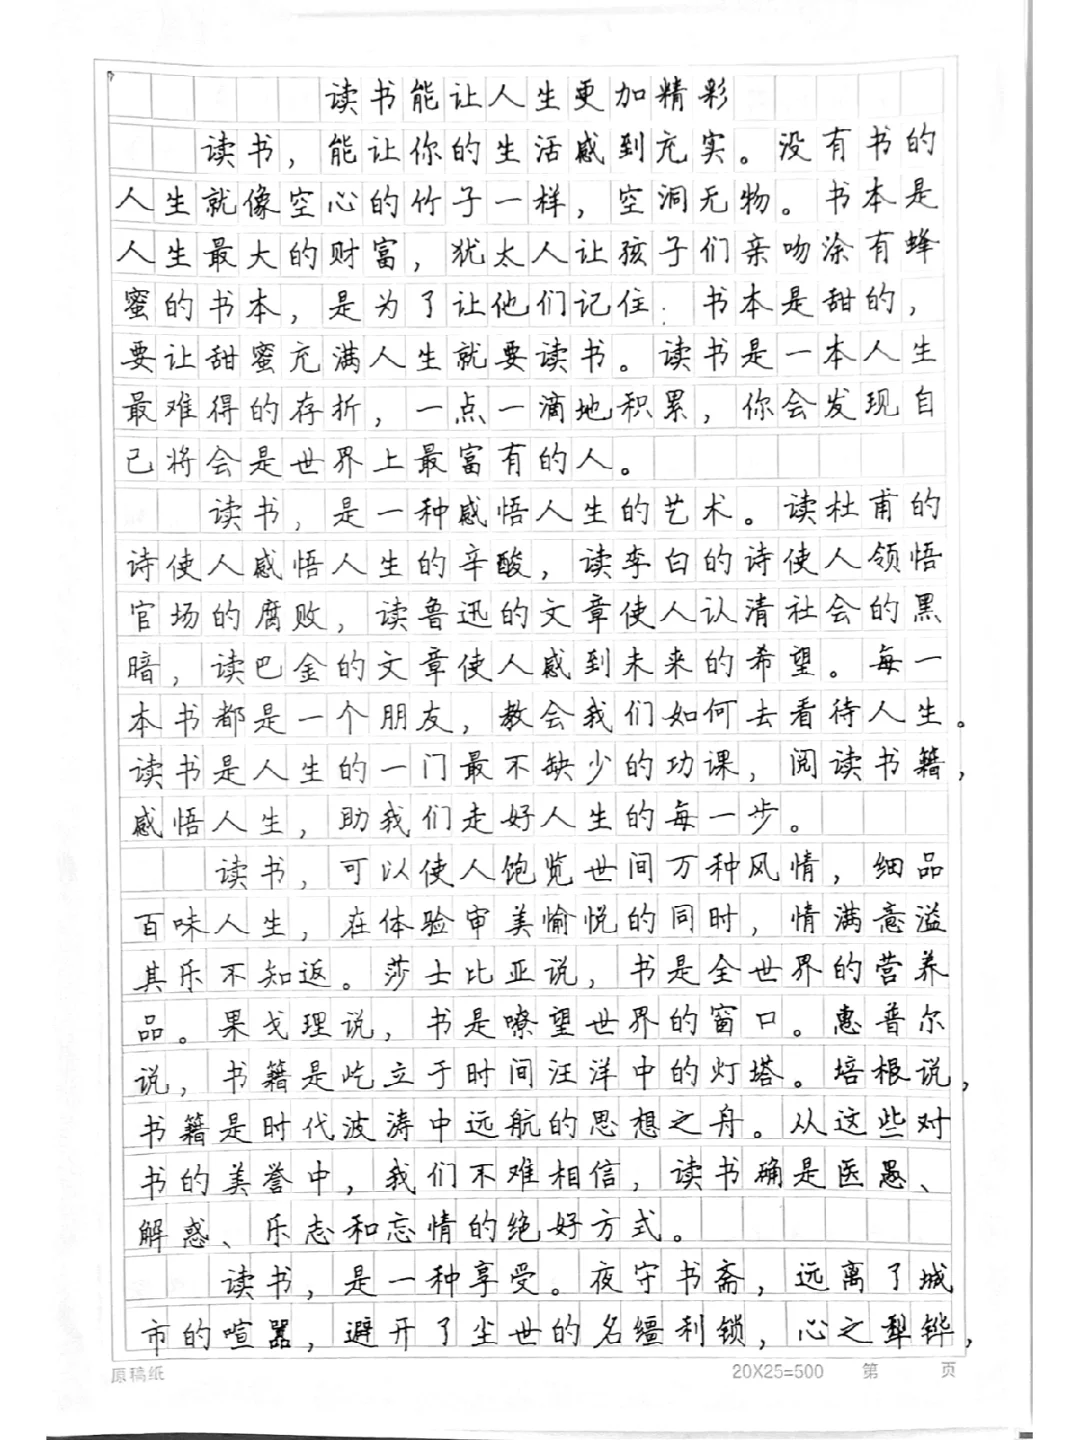 读书能让人生更加精彩
读书，能让你的生活感到充实。没有书的
人生就像空心的竹子一样，空洞无物。书本是
人生最大的财富，犹太人让孩子们亲吻涂有蜂
蜜的书本，是为了让他们记住：书本是甜的，
要让甜蜜充满人生就要读书。读书是一本人生
最难得的存折，一点一滴地积累，你会发现自
己将会是世界上最富有的人。
读书，是一种感悟人生的艺术。读杜甫的
诗使人感悟人生的辛酸，读李白的诗使人领悟
官场的腐败，读鲁迅的文章使人认清社会的黑
暗，读巴金的文章使人感到未来的希望。每一
本书都是一个朋友，教会我们如何去看待人生。
读书是人生的一门最不缺少的功课，阅读书籍，
感悟人生，助我们走好人生的每一步。
读书，可以使人饱览世间万种风情，细品
百味人生，在体验审美愉悦的同时，情满意溢
其乐不知返。莎士比亚说，书是全世界的营养
品。果戈理说，书是嘹望世界的窗口。惠普尔
说，书籍是屹立于时间汪洋中的灯塔。培根说，
书籍是时代波涛中远航的思想之舟。从这些对
书的美誉中，我们不难相信，读书确是医愚、
解惑、乐志和忘情的绝好方式。
读书，是一种享受。夜守书斋，远离了城
市的喧嚣，避开了尘世的名缰利锁，心之犁铧，
原稿纸 20X25=500 第 页